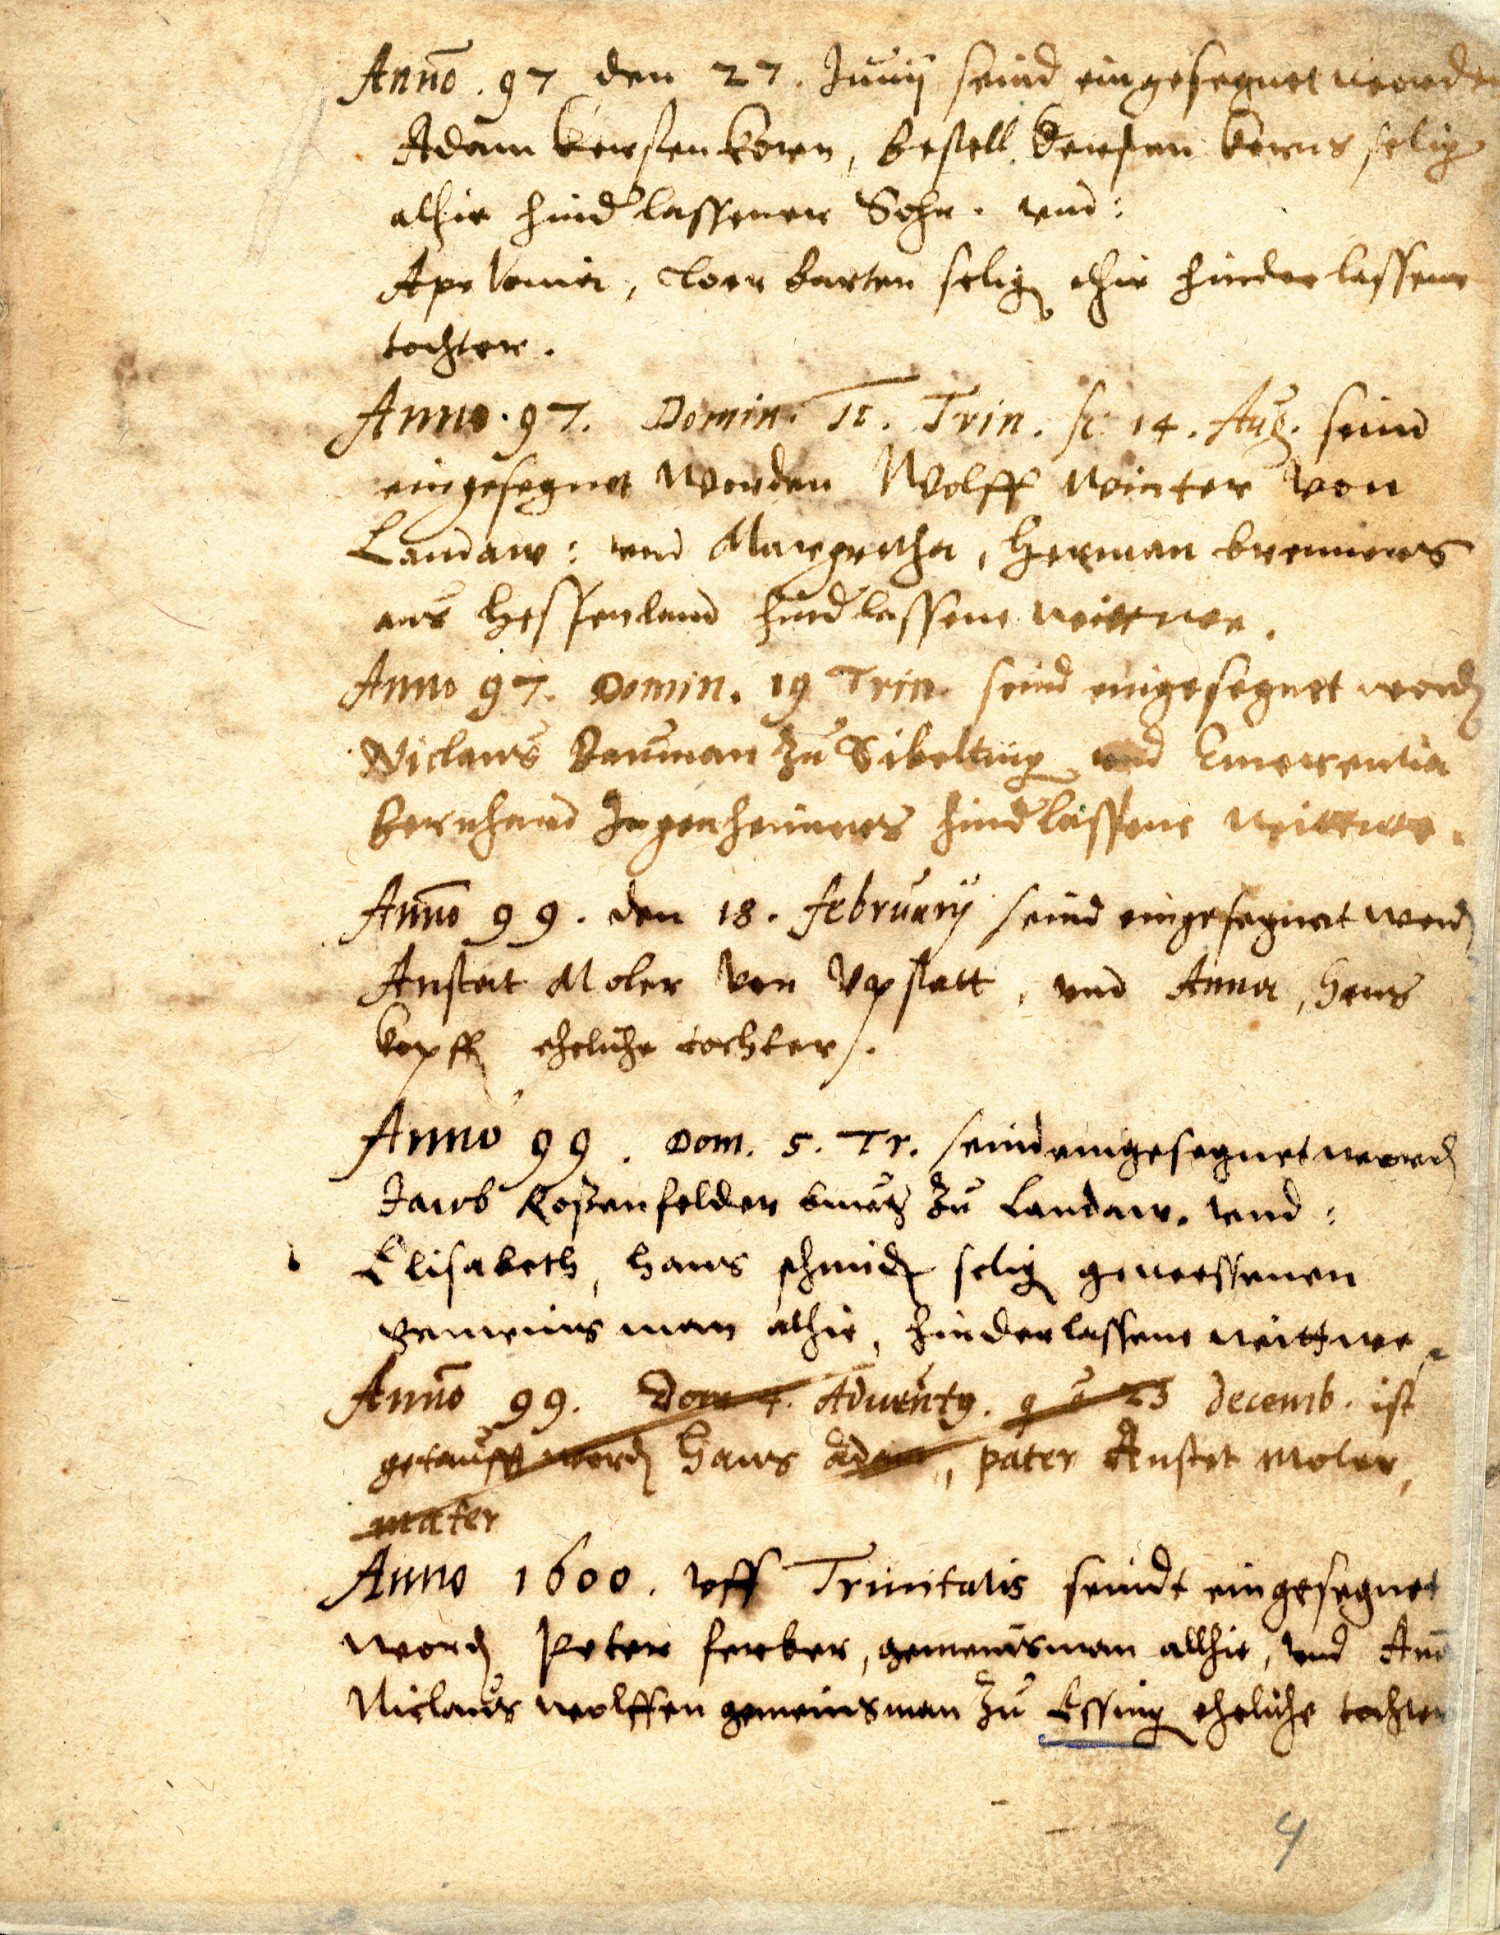 Anno . 97 den 27. Junij seind eingesegnet worden
Adam Kersten Korn, Bestell Kersten Korns selig
alhie hind'lassener Sohn . vnd :
Apelonia, Barten selig alhie hinderlassene
tochter .
Anno . 97. Domin. 12. Trin. sc. 14. Aug. seind
eingesegnet Worden Wolff Winter Von
Landaw : vnd Margretha, Herman brenners
aus Hessenland hind'lassene wittwe .
Anno 97. Domin. 19 Trin. seind eingesegnet word
Niclaus Bauman zu Sibelting vnd Emerentia
Bernhard Ingenheimers hind'lassene wittwe .
Anno 99 . den 18 . february seind eingesegnet word
Anstat Moler Von Vpstatt , vnd Anna, Hans
Kopff eheliche tochter .
Anno 99 . Dom. 5. Tr. seind eingesegnet word
Jacob Roßenfelder zu Landaw . vnd :
Elisabeth, Hans schmids selig gewessenen
gemeinsman alhie, hinderlassene wittwe .
Anno 99. Dom 4. Aduenty. 23 decemb. ist
getaufft word Hans Adam, pater Anstet Moler,
mater
Anno 1600 . vff Trinitatis seindt eingesegnet
word Peter ferber, gemeinsman allhie, vnd Ann
Niclaus wolffen gemeinsman zu Essing eheliche tochter
4